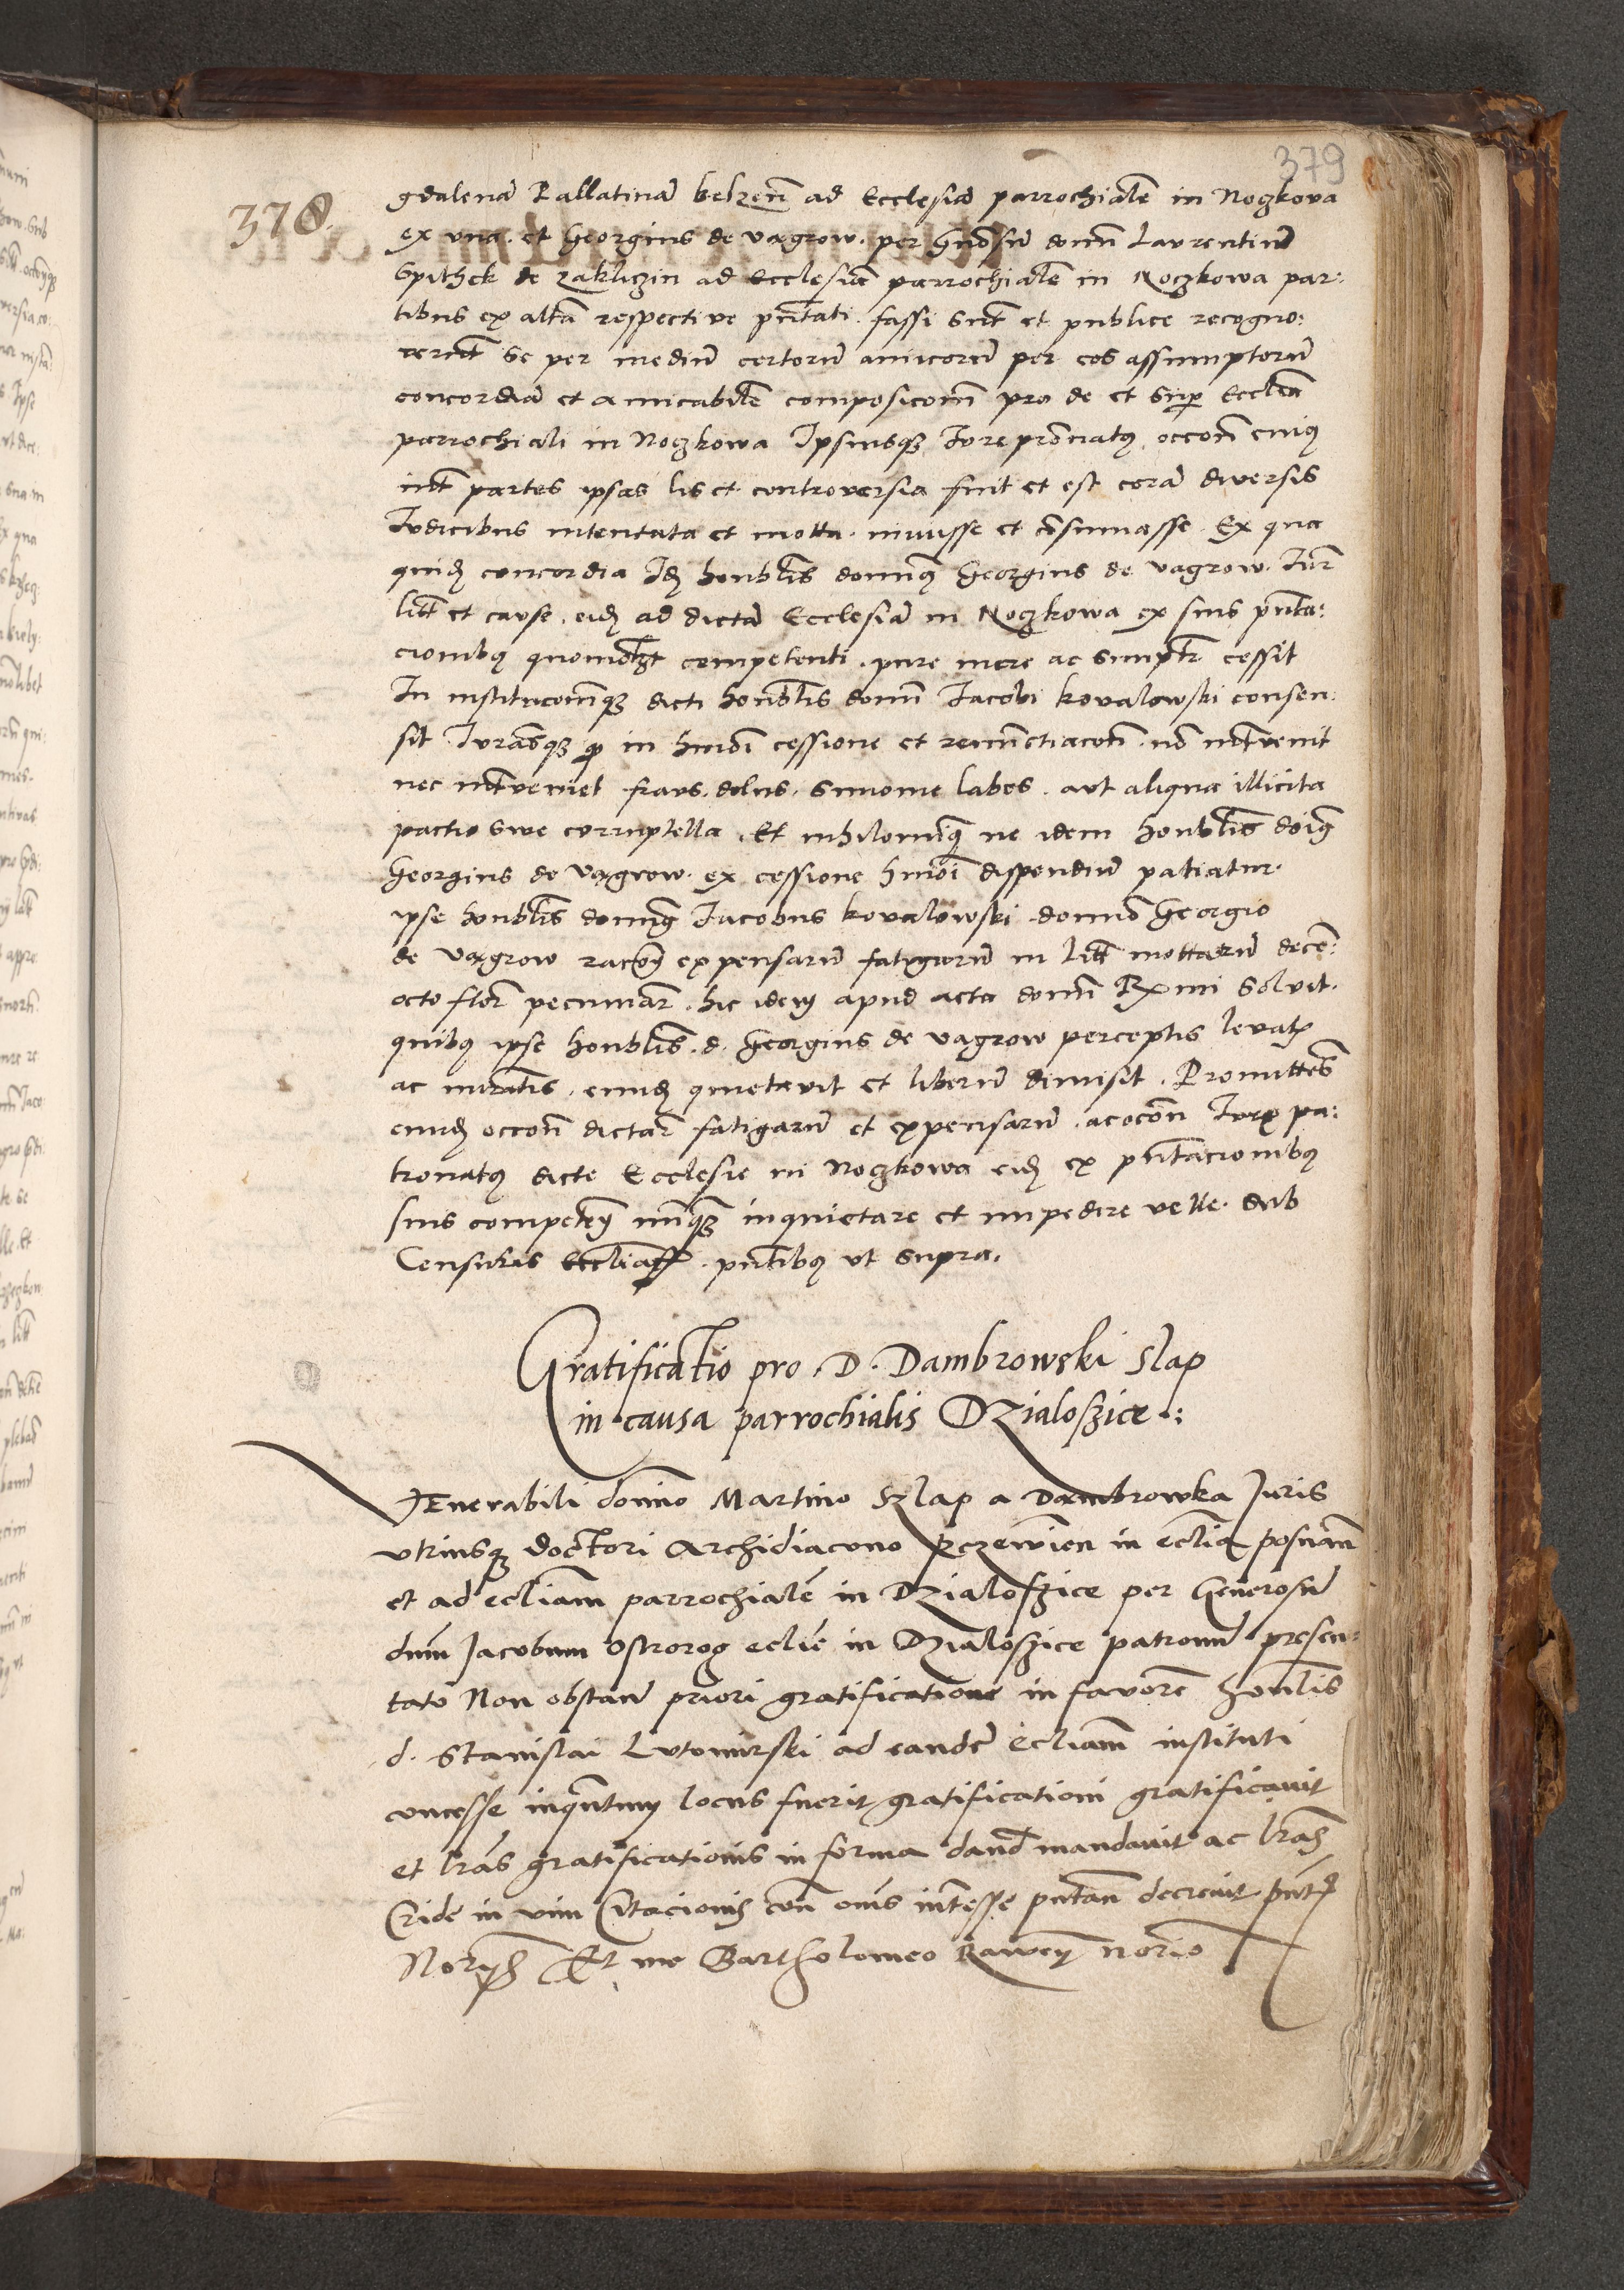 379
378.
gdalenā Pallatinā belzen̄ ad Ecclesiā parrochialē in Noczkova
ex vna . et Georgius de vagrow . per gn̄osū domn̄ Laurentiū
Spithek de zakliczin ad Ecclesiā parrochialē in Noczkowa par:
tibus ex altā respective pn̄tati . fassi sunt et publice recogno:
verūt se per mediū certorū amicorū per eos assumptorū
concordiā et amicabilē composicom̄ pro de et sup̄ Ecclīa
parrochiali in Noczkowa Ipsiusqʒ Iure pronatꝰ occon̄ cuiꝰ
int̄ partes ipsas lis et controversia fuit et est corā diversis
Iudicibus intentata et motta . iniuisse et cōsumasse . Ex qua
quidʒ concordia Idʒ honblīs domnꝰ Georgius de vagrow . Iur̄
litt̄ et cause . eidʒ ad dictā Ecclesiā in Noczkowa ex suis pn̄ta:
cionibꝰ quomōlʒt competenti . pure mere ac simplr̄ cessit
In institucomqʒ dicti honblīs domn̄ Iacobi kovalowski consen:
sit . Iurāsqʒ ꝙ in hmōi cessione et renūctiacon̄ . nō int̄venit
nec int̄veniet fraus . dolus . simonie labes . aut aliqua illicita
pactio siue corruptella . Et nihilominꝰ ne idem honblīs dōinꝰ
Georgius de Vagrow . ex cessione hmōi dispendiū patiatur .
ipse honblīs domnꝰ Iacobus kovalowski domnō Georgio
de Vagrow racōeʒ expensarū fatigarū in litt̄ mottarū decē:
octo flor̄ pecuniar̄ . hic idem apud acta domn̄ Rx̄mi solvit .
quibꝰ ipse honblīs . d . Georgius de vagrow perceptis levatꝭ
ac nūratis . eundʒ quietavit et liberū dimisit . Promittēs
eundʒ occon̄ dictar̄ fatigarū et expensarū . ac occon̄ Iurꝭ pa:
tronatꝰ dicte Ecclesie in Noczkowa eidʒ ex pn̄tacionibꝰ
suis competeʒ nūqʒ inquietare et impedire velle . sub
Censuris Ecclīaꝭ . pn̄tibꝰ vt supra .
Gratificatio pro . D . Dambrowski Slap
in causa parrochialis Dzialoszice .:
VEnerabili domino Martino Szlap a Dambrowka Juris
vtriusqʒ doctori Archidiacono Pczewien̄ in ecl̄ia posnan̄
et ad ecliam parrochialē in Dzialoszice per Generosū
dnm Jacobum Ostrorog eclīe in Dzialoszice patronū presen=
tato Non obstan̄ priori gratificatione in favorē honlīs
d . Stanislai Lutomirski ad eandē ecliam instituti
concesse inqn̄tum locus fuerit gratificationi gratificauit
et lrās gratificationis in forma dand̄ mandauit ac lrās
Cride in vim Citacionis con̄ oms int̄esse putan̄ decreuit pn̄tꝰ
Et me Bartholomeo norio